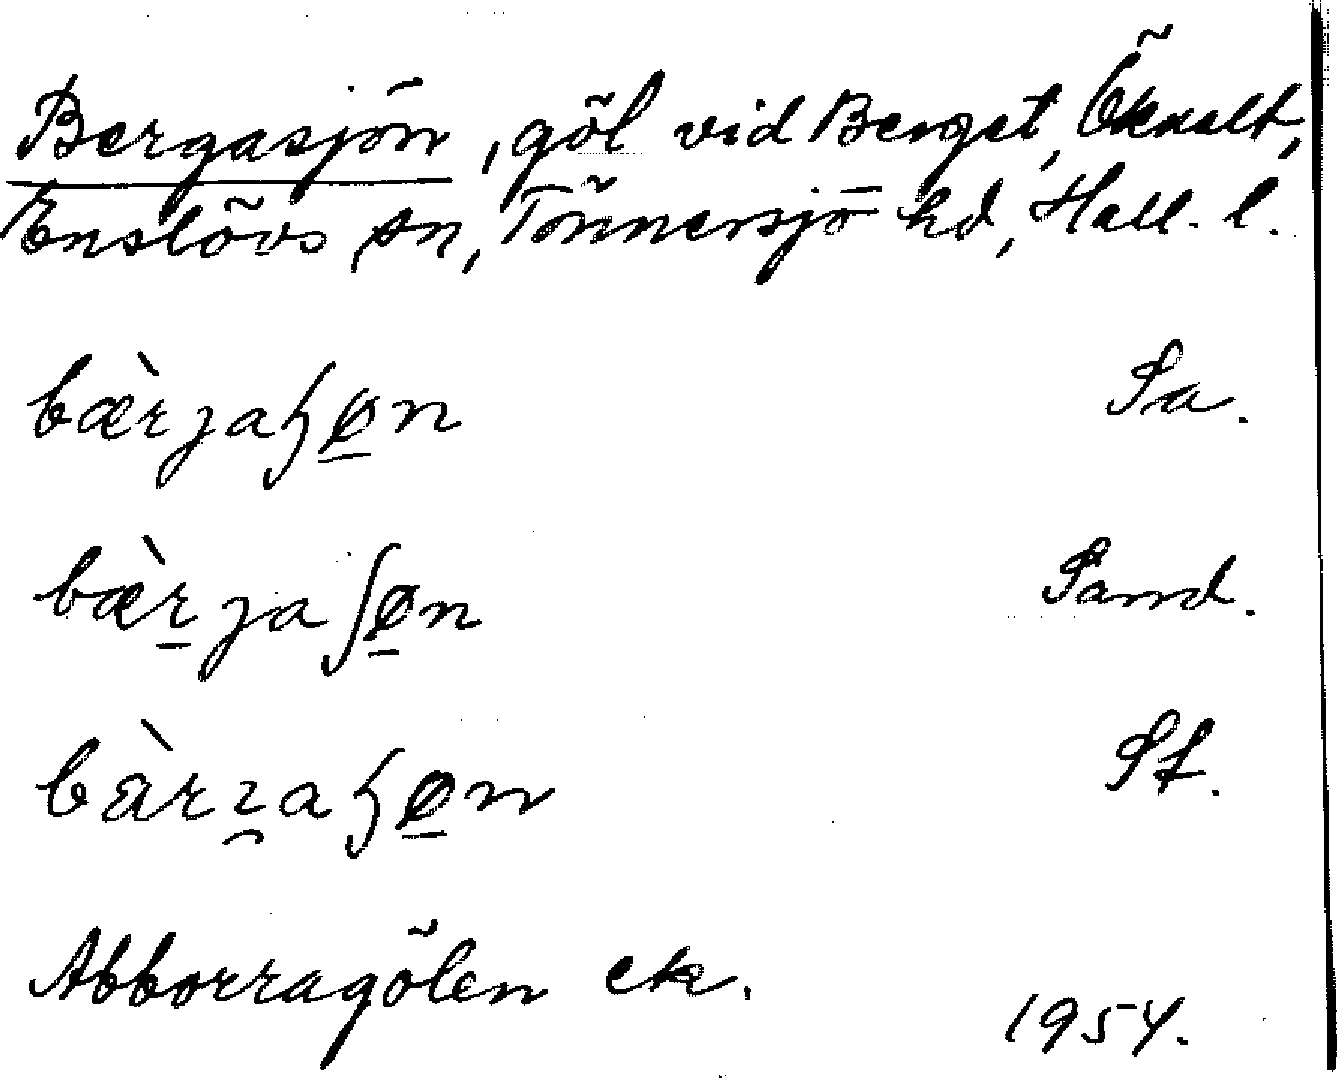 Bergasjön, göl vid Berget, Öknalt,
Enslövs sn, Tönnersjö hd, Hall. l.
bæ̀rjaɧøn Sa.
bæ̀rjaʃøn Sand.
Sf.
Abborragölen ek.
1954.